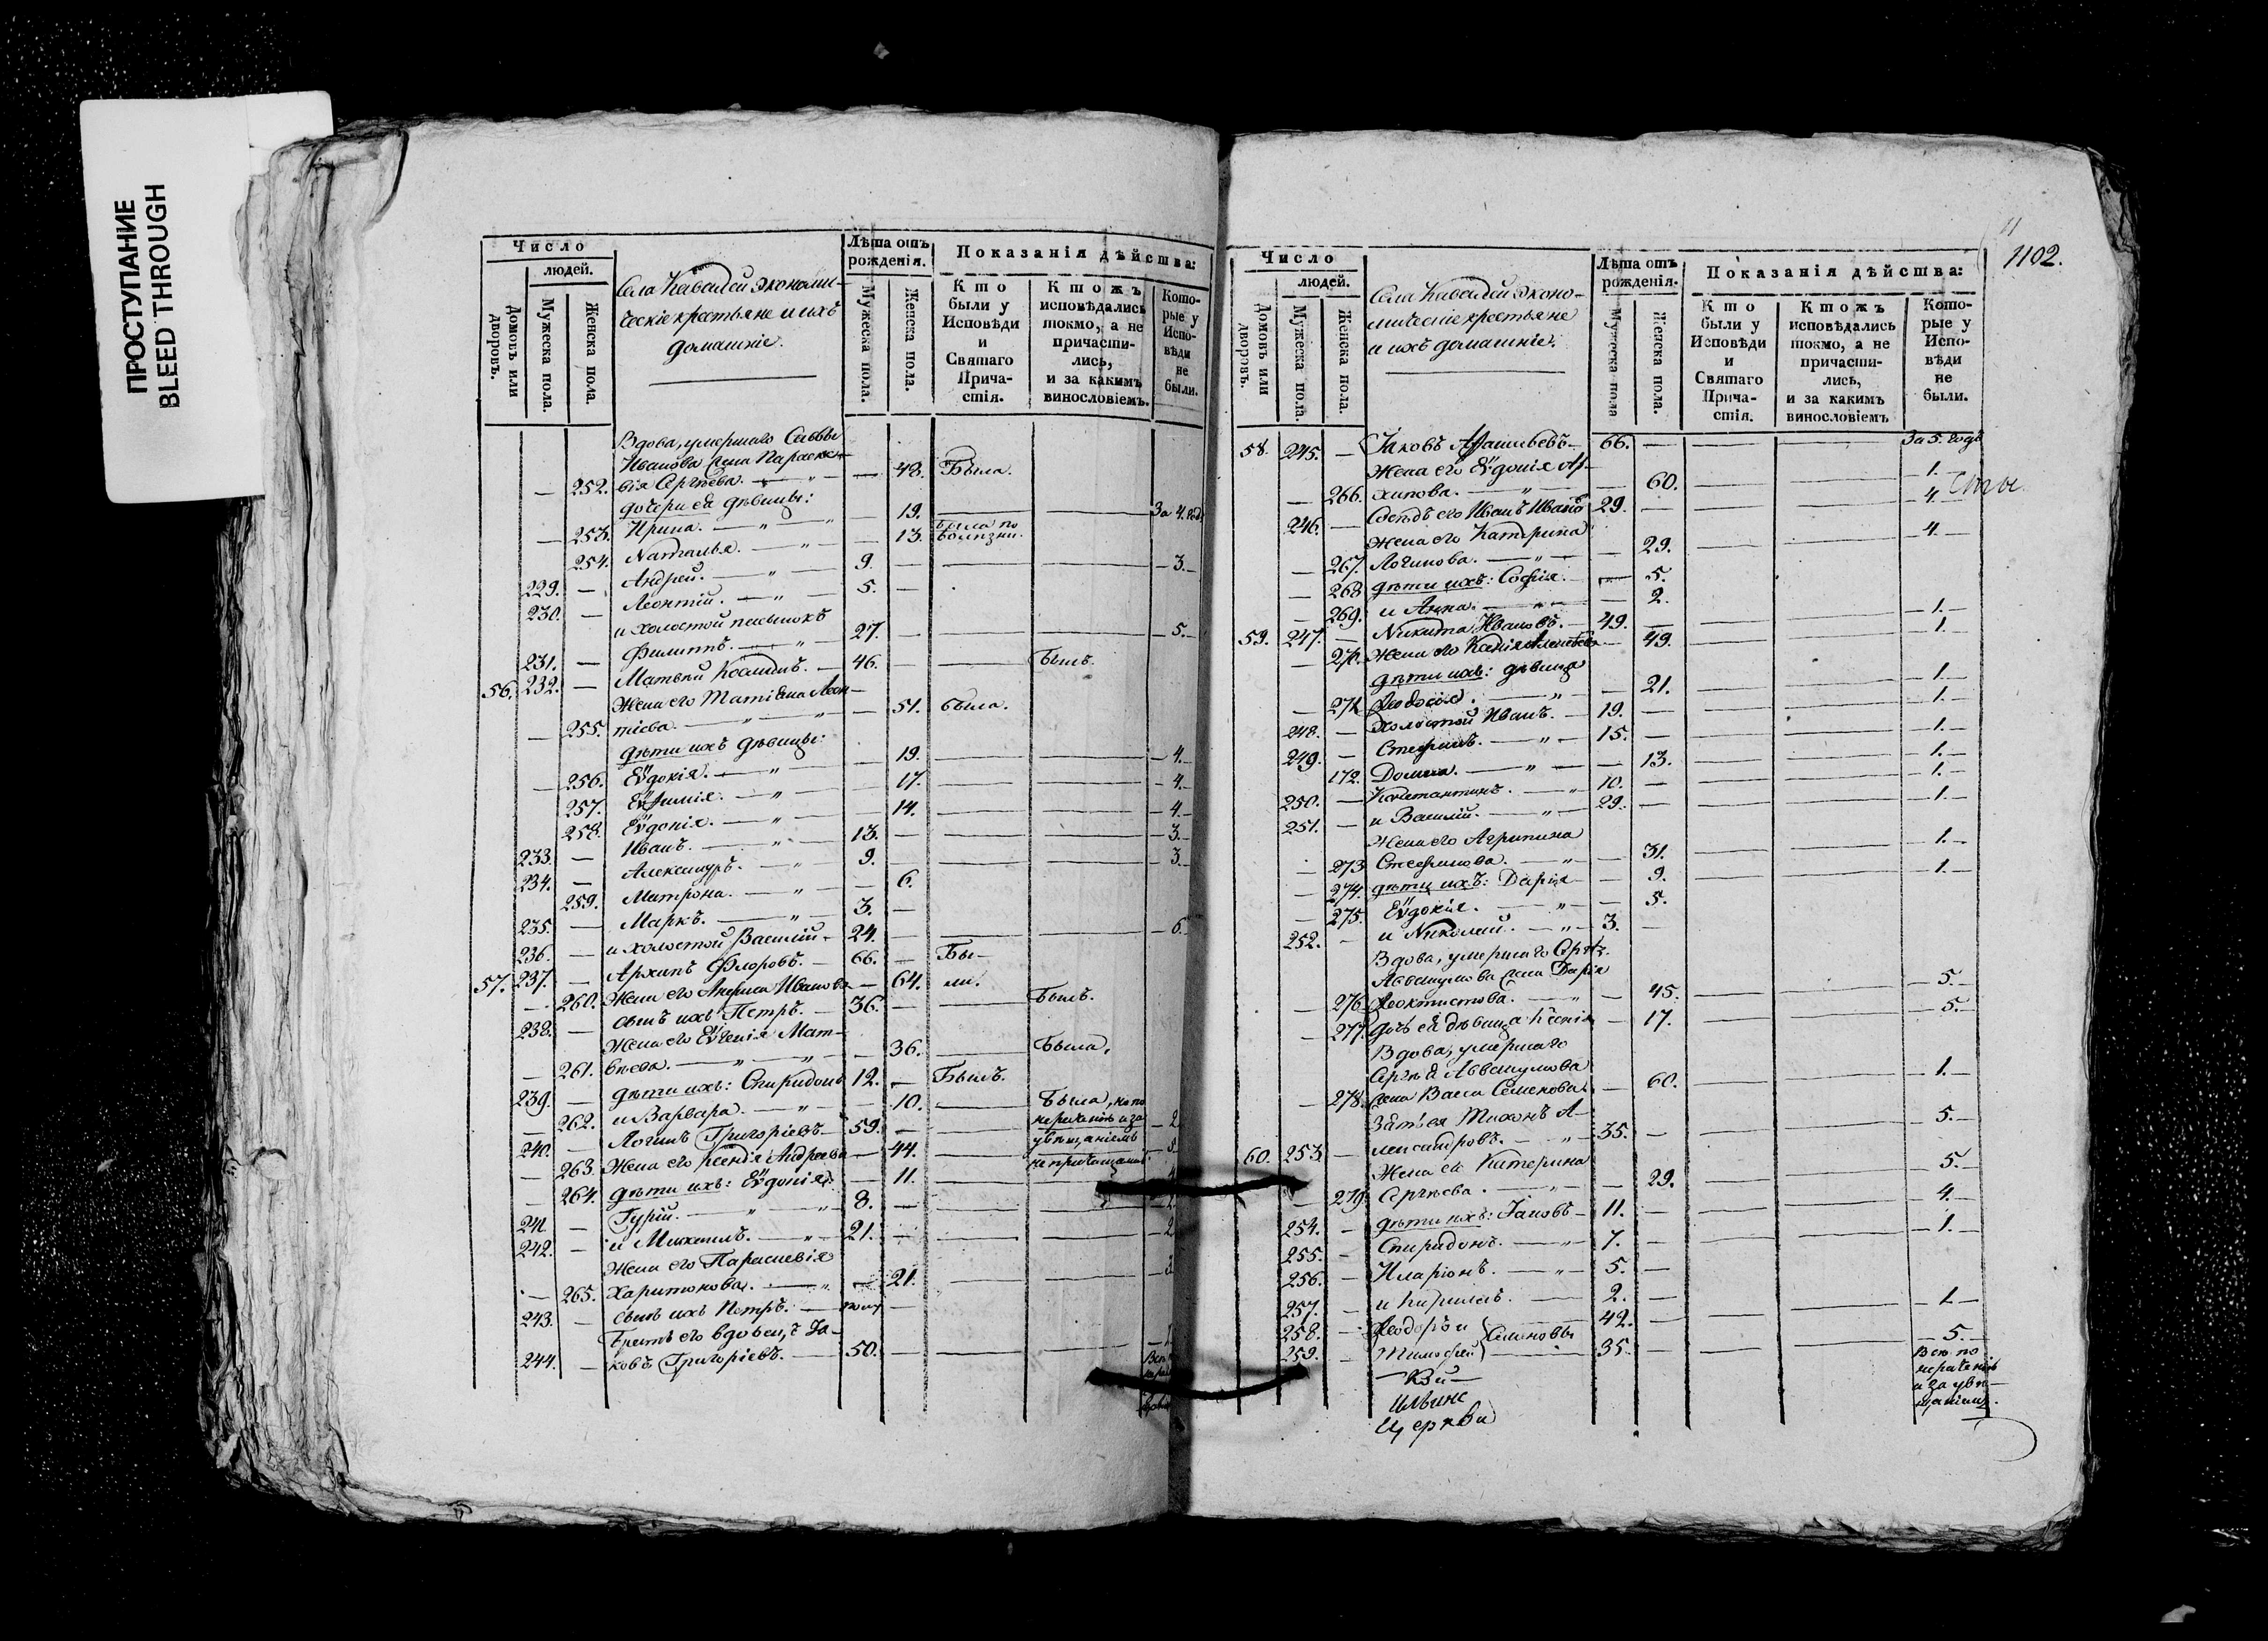 ПРОСТУПАНИЕ
BLEED THROUGH
Число
людей.
Домовъ или дворовъ.
Мужеска пола.
Женска пола.
Села
Экономи-
ческіе крестьяне и ихъ
домашніе.
Лѣта отъ
рожденія.
Мужеска пола.
Женска пола.
Показанія дѣйства:
Кто
были у
Исповѣди
и
Святаго
Прича-
стія.
Ктожъ
исповѣдались
токмо, а не
причасти-
лись,
и за какимъ
винословіемъ.
Кото-
рые у
Испо-
вѣди
не
были.
Вдова, умершаго Саввы
Иванова жена Параске-
252. вія Сергѣева. — 48. Была.
дочери ея дѣвицы:
253. Ирина. — 19. За 4. год
254. Наталья. — 13. была по болѣзни.
229. — Андрей. — 9. — 3.
230. — Леонтій. — 5. —
и холостой пасынокъ
231. — Филиппъ. — 27. — 5.
56. 232. — Матвѣй Косминъ. — 46. — Былъ.
Жена его Матіѳна Леон-
255. тіева. — 51. была.
дѣти ихъ дѣвицы:
256. Еѵдокія. — 19. — 4.
257. Еѵѳимія. — 17. — 4.
258. Еѵдокія. — 14. — 4.
233. — Иванъ. — 13. — 3.
234. — Александръ. — 9. — 3.
259. Матрона. — 6.
235. — Маркъ. — 3. —
236. — и холостой Василій — 24. — 6.
57. 237. — Архипъ Флоровъ. — 66. — Бы-
260. Жена его Иванова — 64. ли.
238. — сынъ ихъ Петръ. — 36. — Былъ.
Жена его Еѵгенія Мат-
261. вѣева. — 36. — Была.
239. — дѣти ихъ: Спиридонъ 12. — Былъ.
262. и Варвара. — 10. — Была, но по
240. — Логинъ Григоріевъ — 59. — нераченію и за — 2
263. Жена его Ксенія Андреева — 44. — увѣщаніемъ
264. дѣти ихъ: Еѵдокія. — 11. — не причащались
241. — Гурій. — 8. — 2
242. — и Михаилъ. — 21. — 2
Жена его Параскевія
265. Харитонова. — 21.
243. — сынъ ихъ Петръ. —
Братъ его вдовецъ Іа-
244. — ковъ Григоріевъ. — 50. —
1102.
Число
людей.
Домовъ или дворовъ.
Мужеска пола.
Женска пола.
Села
Эконо-
мическіе крестьяне
и ихъ домашніе.
Лѣта отъ
рожденія.
Мужеска пола
Женска пола.
Показанія дѣйства:
Кто
были у
Исповѣди
и
Святаго
Прича-
стія.
Ктожъ
исповѣдались
токмо, а не
причасти-
лись,
и за какимъ
винословіемъ
Кото-
рые у
Испо-
вѣди
не
были.
58. 245. — Іаковъ — 66. — За 5. годъ
Жена его Еѵдокія Ар-
266. хипова. — 60. — 1.
246. — Сосѣдъ его Иванъ Ивано 29. — 4.
Жена его Катерина
267. Логинова. — 29. — 4.
268. дѣти ихъ: Софія. — 5.
269. и Анна. — 2.
59. 247. — Никита Ивановъ. — 49. — 1.
270. Жена его — 49. — 1.
дѣти ихъ: дѣвица
271. Ѳеодосія. — 21. — 1.
248. — Холостой Иванъ. — 19. — 1.
249. — Стефанъ. — 15. — 1.
172. Домна. — 13. — 1.
250. — Константинъ. — 10. — 1.
251. — и Василій. — 29. — 1.
Жена его Агрипина
273 Стефанова. — 31. — 1.
274. дѣти ихъ: Дарія — 9. — 1.
275. Еѵдокія. — 5.
252. — и Николай. — 3. —
Вдова, умершаго Сергѣ.
Аввакумова жена Дарія
276. Ѳеоктистова. — 45. — 5.
277. дочь ея дѣвица Ксенія — 17. — 5.
Вдова, умершаго
Сергѣя Аввакумова
278. жена Васса Семенова — 60. — 1.
Зять ея Тихонъ А-
60. 253. — лександровъ. — 35. — 5.
Жена его Катерина
279. Сергѣева. — 29. — 5.
254. — дѣти ихъ: Іаковъ — 11. — 4.
255. — Спиридонъ. — 7. — 1.
256. — Иларіонъ. — 5. —
257. — и Кирилъ. — 2. —
258. — Ѳеодоръ и 42. — 1.
259. — Тимоѳей Семеновы — 35. — 5.
Всѣ по
нераченію
и за увѣ-
щаніемъ.
Ильинс
Церкви